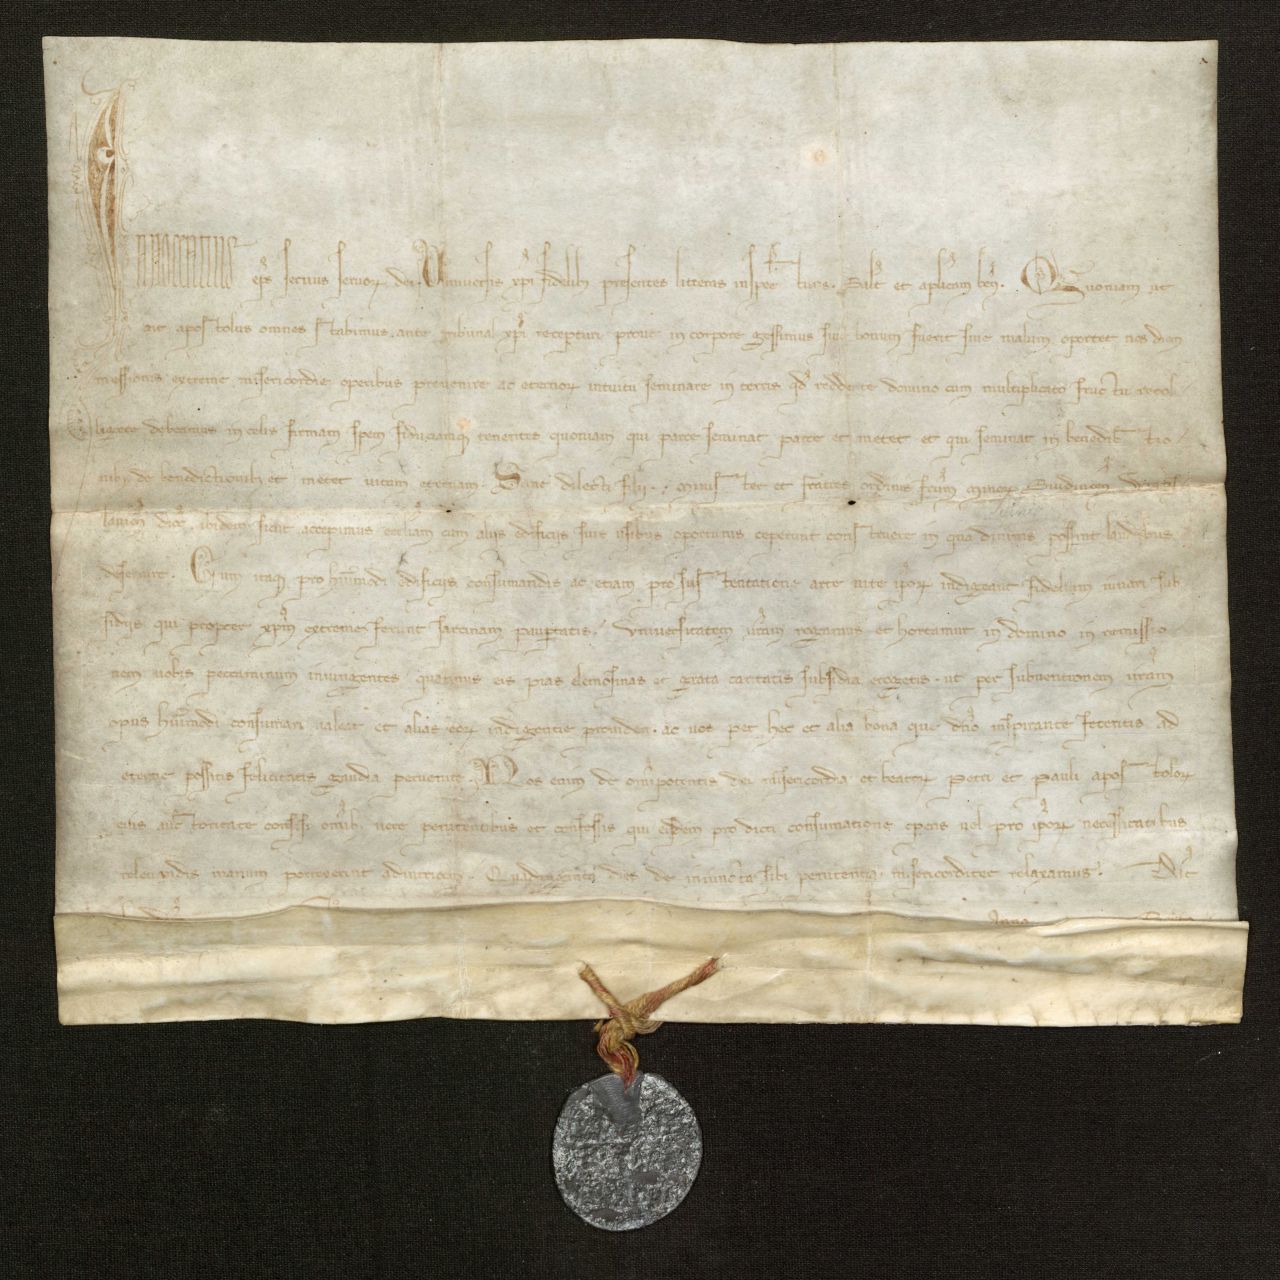 Innocentius ep̄s servus servoꝝ dei. Universis xp̄i fidelib; presentes litteras inspecturis. Salt̄ et ap̄licam ben̄. Quoniam ut
ait apostolus omnes stabimus ante tribunal xp̄i recepturi prout in corpore gessimus sive bonum fuerit sive malum oportet nos diem
messionis extreme misericordie operibus prevenire ac eternoꝝ intuitu seminare in terris qđ reddente domino cum multiplicato fructu recol
ligere debeamus in celis firmam spem fiduciamq; tenentes quoniam qui parce seminat parce et metet et qui seminat in benedictio
nib; de benedictionib; et metet vitam eternam. Sane dilecti filii .. minister et fratres ordinis fr̄m minoꝝ
dic̄ ibidem sicut accepimus eccl̄iam cum aliis edificiis suis usibus oportunis ceperunt construere in qua divinis possint laudibus
deservire. Cum itaq; pro huīmodi edificiis consumandis ac etiam pro sustentatione arte vite ip̄oꝝ indigeant fidelium iuvari sub
sidiis qui propter xp̄m extreme ferunt sarcinam paup̄tatis. Universitatem vr̄am rogamus et hortamur in domino in remissio
nem vobis peccaminum iniungentes quatinus eis pias elemosinas et grata caritatis subsidia erogetis. ut per subventionem vr̄am
opus huīmodi consumari valeat et alias eoꝝ indigentie provideri. ac vos per hec et alia bona que dn̄o inspirante feceritis ad
eterne possitis felicitatis gaudia pervenire. Nos enim de om̄ipotentis dei misericordia et beatoꝝ Petri et Pauli apostoloꝝ
eius auctoritate confisi om̄ib; vere penitentibus et confessis qui eisdem pro dicti consumatione operis vel pro ip̄oꝝ necessitatibus
relevandis manum porrexerint adiutricem. Quadraginta dies de iniuncta sibi penitentia misericorditer relaxamus. Dat̄
Anno